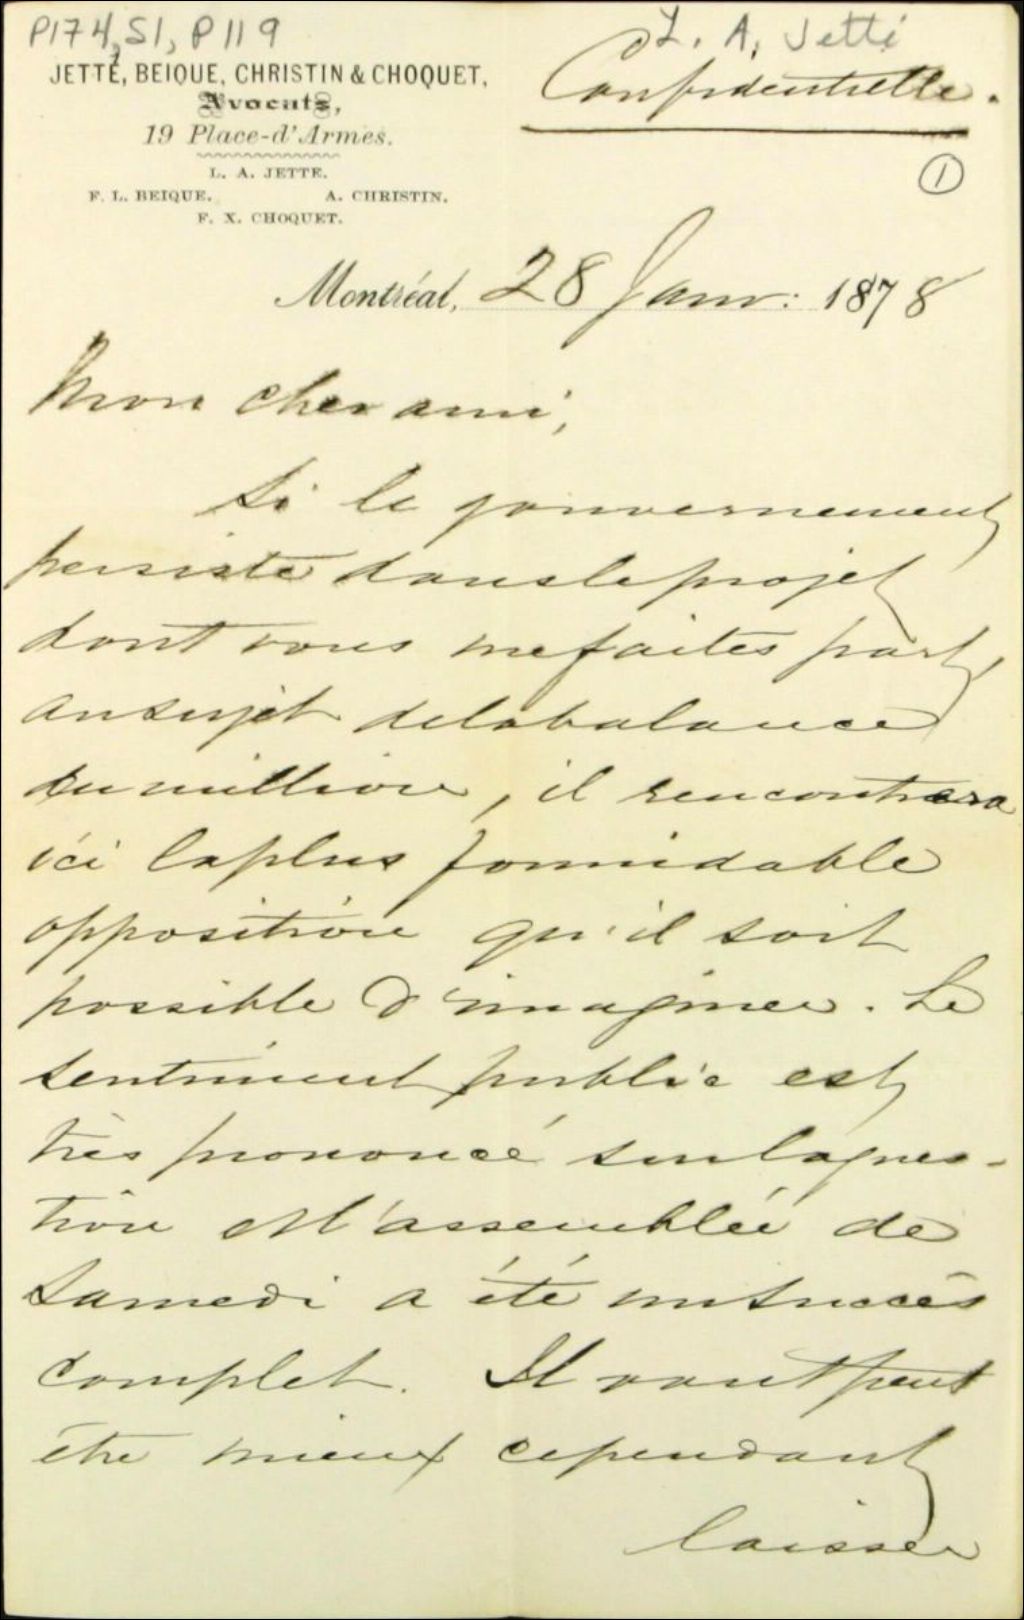 P174, S1, P119
L. A. Jetté
JETTÉ, BEIQUE, CHRISTIN & CHOQUET,
Avocats,
19 Place-d'Armes.
L. A. JETTE.
F. L. BEIQUE. A. CHRISTIN.
F. X. CHOQUET.
Confidentielle.
1
Montréal, 28 Janv: 1878
Mon cher ami,
Si le gouvernement
persiste dans le projet
dont vous me faites part,
au sujet de la balance
du million, il rencontrera
ici la plus formidable
opposition qu'il soit
possible d'imaginer. Le
sentiment public est
très prononcé sur la ques-
tion et l'assemblée de
Samedi a été un succès
complet. Il vaut peut
être mieux cependant
laisser